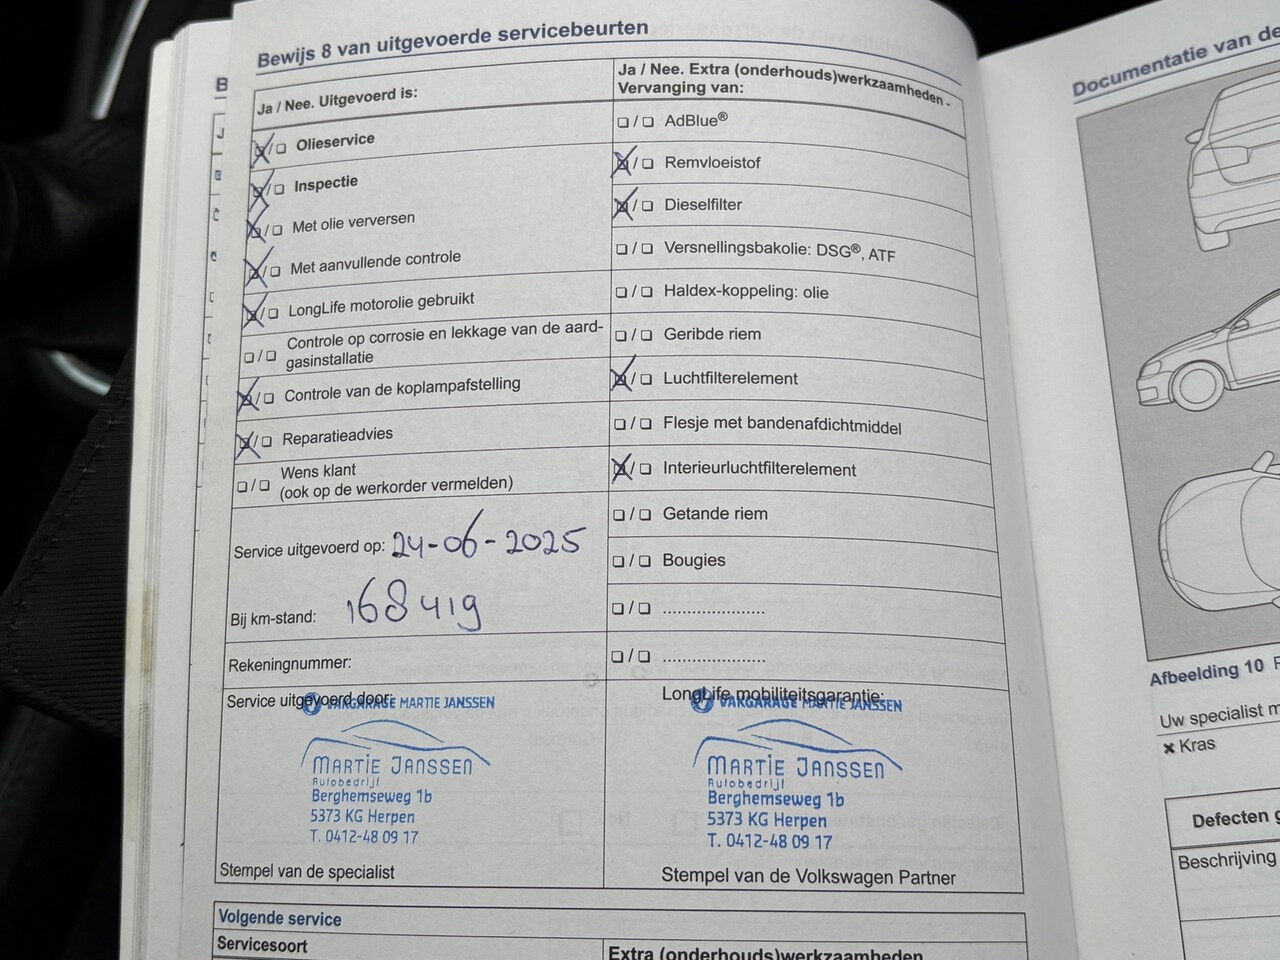 Bewijs 8 van uitgevoerde servicebeurten
Ja / Nee. Uitgevoerd is:
Olieservice
Inspectie
Met olie verversen
Met aanvullende controle
LongLife motorolie gebruikt
Controle op corrosie en lekkage van de aard-
gasinstallatie
Controle van de koplampafstelling
Reparatieadvies
Wens klant
(ook op de werkorder vermelden)
Service uitgevoerd op: 24-06-2025
Bij km-stand: 168419
Rekeningnummer:
Service uitgevoerd door:
VAKGARAGE MARTIE JANSSEN
MARTIE JANSSEN
Autobedrijf
Berghemseweg 1b
5373 KG Herpen
T. 0412-48 09 17
Stempel van de specialist
Ja / Nee. Extra (onderhouds)werkzaamheden -
Vervanging van:
AdBlue®
Remvloeistof
Dieselfilter
Versnellingsbakolie: DSG®, ATF
Haldex-koppeling: olie
Geribde riem
Luchtfilterelement
Flesje met bandenafdichtmiddel
Interieurluchtfilterelement
Getande riem
Bougies
.....................
.....................
LongLife mobiliteitsgarantie:
VAKGARAGE MARTIE JANSSEN
MARTIE JANSSEN
Autobedrijf
Berghemseweg 1b
5373 KG Herpen
T. 0412-48 09 17
Stempel van de Volkswagen Partner
Volgende service
Servicesoort
Extra (onderhouds)werkzaamheden
Documentatie van de
Afbeelding 10
Uw specialist m
Kras
Defecten g
Beschrijving